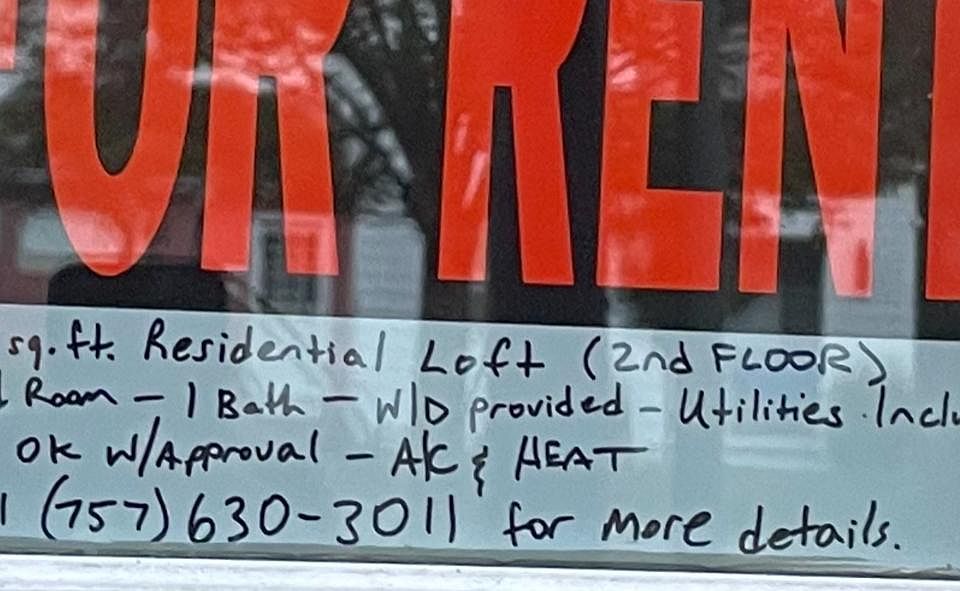 FOR RENT
sq.ft. Residential Loft (2nd FLOOR)
Room - 1 Bath - W/D provided - Utilities Inclu
OK W/Approval - A/C & HEAT
(757) 630-3011 for more details.